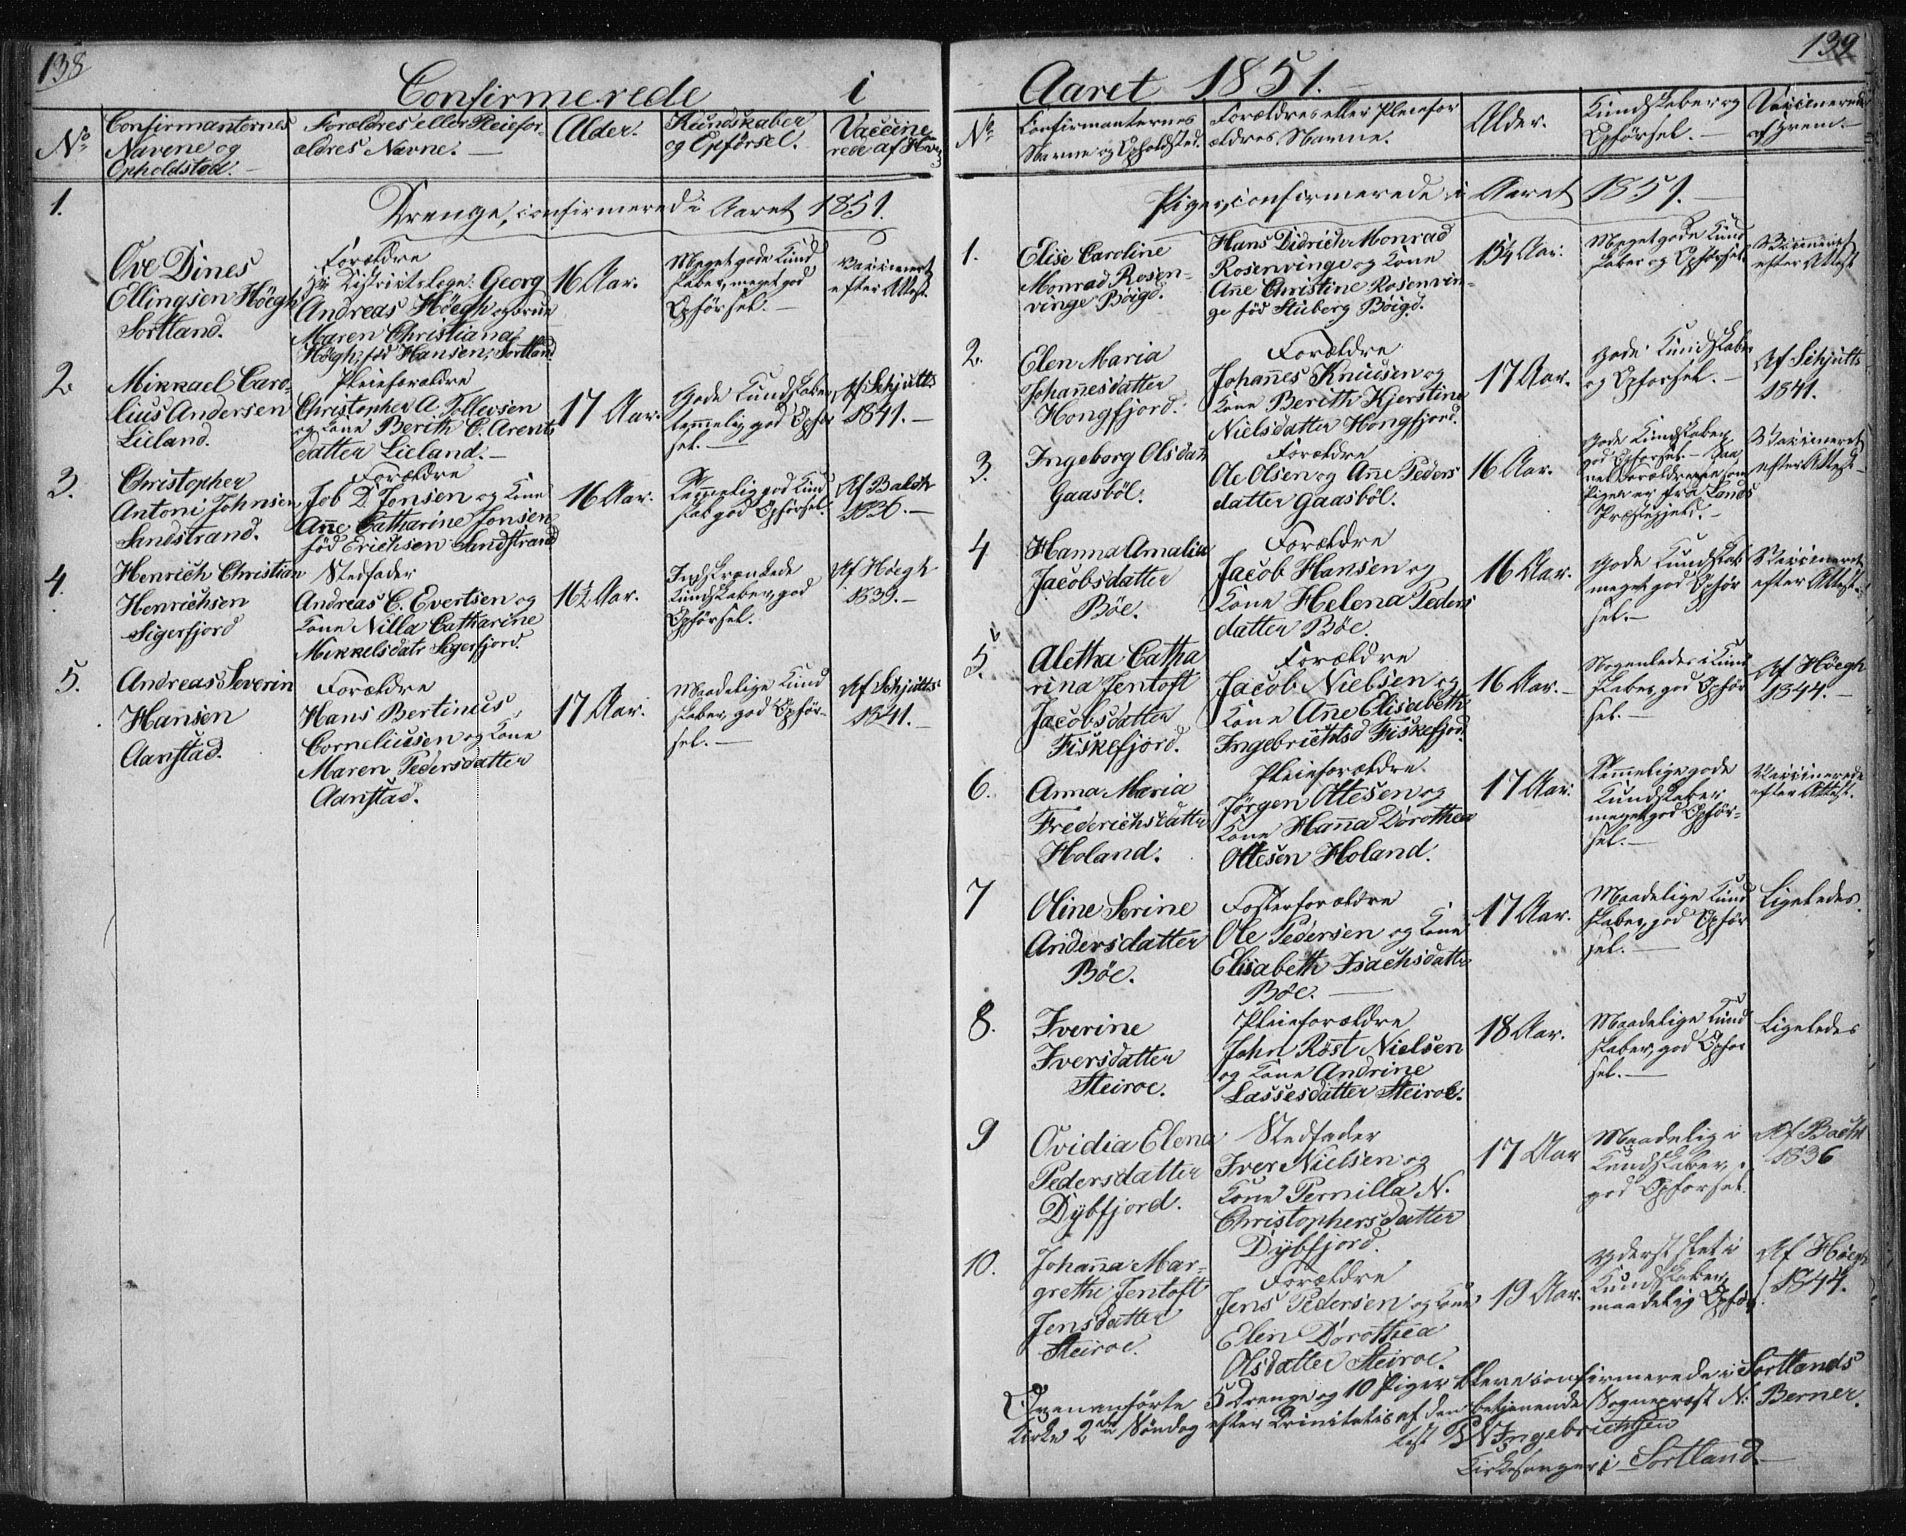 138
Confirmerede i
No
Confirmanternes
Navene og
Opholdsted.
Forældres eller Pleiefor-
ældres Navne.
Alder.
Kundskaber
og Opførsel.
Vaccine
rede af Hvem
1.
Drenge, confirmerede i Aaret 1851.
Ove Dines
Ellingsen Höegh
Sortland.
Forældre
Hr Districtslæge: Georg
Andreas Höegh og Frue
Maren Christiana
Høegh, fød Hansen, Sortland
16 Aar.
Meget gode Kund
skaber, meget god
Opförsel.
Vaccineret
efter Attest.
2.
Mikkael Caro
lius Andersen
Lieland.
Pleieforældre
Christopher A. Tollevsen
og Kone Berith C. Arents
datter Lieland.
17 Aar.
Gode Kundskaber
temmelig god Opfør
sel.
Af Schjütts
1841.
3.
Christopher
Antoni Johnsen
Sandstrand.
Forældre
Job D Jonsen og Kone
Añe Catharine Jonsen
föd Erichsen Sandstrand
16 Aar.
Temmelig god Kund
skab, god Opförsel.
Af Balch
1836.
4.
Henrich Christian
Henrichsen
Sigerfjord
Stedfader
Andreas C. Evertsen og
Kone Nilla Catharine
Mikkelsdatr Sigerfjord.
16½ Aar.
Indskrænkede
Kundskaber, god
Opförsel.
Af Höegh
1839.
5.
Andreas Severin
Hansen
Aanstad.
Forældre
Hans Bertinus
Corneliusen og Kone
Maren Pedersdatter
Aanstad.
17 Aar.
Maadelige Kund
skaber, god Opför-
sel.
Af Schjütts
1841.
139
Aaret 1851.
No
Confirmanternes
Navne og Opholdsted.
Forældres eller Pleiefor
ældres Navne.
Alder.
Kundskaber og
Opförsel.
Vaccinerede
af Hvem.
Piger, confirmerede i Aaret 1851.
1.
Elise Caroline
Monrad Rosen-
vinge Böigd.
Hans Didrich Monrad
Rosenvinge og Kone
Añe Christine Rosenvin-
ge föd Stüberg Böigd.
15¼ Aar.
Meget gode Kund
skaber og Opförsel.
Vaccineret
efter Attest
2.
Elen Maria
Johañesdatter
Hongfjord.
Forældre
Johañes Knusen og
Kone Berith Kjerstine
Nielsdatter Hongfjord.
17 Aar.
Gode Kundskaber
og Opförsel.
Af Schjutts
1841.
3.
Ingeborg Olsdatr
Gaasböl.
Forældre
Ole Olsen og Añe Peders
datter Gaasböl.
16 Aar.
Gode Kundskaber
god Opförsel.
Forældrene som
Pigen er fra Lands
Præstegjeld.
Vaccineret
efter Attest
4
Hanna Amalia
Jacobsdatter
Böe.
Forældre
Jacob Hansen og
Kone Helena Peders
datter Böe.
16 Aar.
Gode Kundskab
meget god Opför
sel.
Vaccineret
efter Attest.
5.
Aletha Catha
rina Jentoft
Jacobsdatter
Fiskefjord.
Forældre
Jacob Nielsen og
Kone Añe Elisabeth
Ingebrichtsd Fiskefjord.
16 Aar.
Nogenledes i Kund
skaber, god Opför
sel.
Af Höegh
1844.
6.
Anna Maria
Frederichsdatter
Holand.
Pleieforældre
Jörgen Ottesen og
Kone Hañna Dorothea
Ottesen Holand.
17 Aar.
Temmelige gode
Kundskaber
meget god Opför-
sel.
Vaccinerede
efter Attest.
7
Oline Serine
Andersdatter
Böe.
Fosterforældre
Ole Pedersen og Kone
Elisabeth Isachsdatter
Böe.
17 Aar.
Maadelige Kund
skaber, god Opför
sel.
Ligeledes.
8.
Iverine
Iversdatter
Steiroe.
Pleieforældre
John Röst Nielsen
og Kone Andrine
Lassesdatter Steiroe.
18 Aar.
Maadelige Kund
skaber, god Opfør
sel.
Ligeledes
9
Ovidia Elena
Pedersdatter
Dÿbfjord.
Stedfader
Iver Nielsen og
Kone Pernilla N.
Christophersdatter
Dÿbfjord.
17 Aar
Maadelig i
Kundskaber,
god Opförsel.
Af Balch
1836
10.
Johaña Mar-
grethe Jentoft
Jensdatter
Steiroe.
Forældre
Jens Pedersen og Kone
Elen Dorothea
Olsdatter Steiroe.
19 Aar.
Yderst slet i
Kundskaber,
maadelig Opför.
Af Höegh
1844.
Ovenanförte 5 Drenge og 10 Piger bleve confirmerede i Sortlands
Kirke 2den Söndag efter Trinitatis af den betjenende Sogneprest N: Berner.
W Ingebrichtsen
Kirkesanger i Sortland.